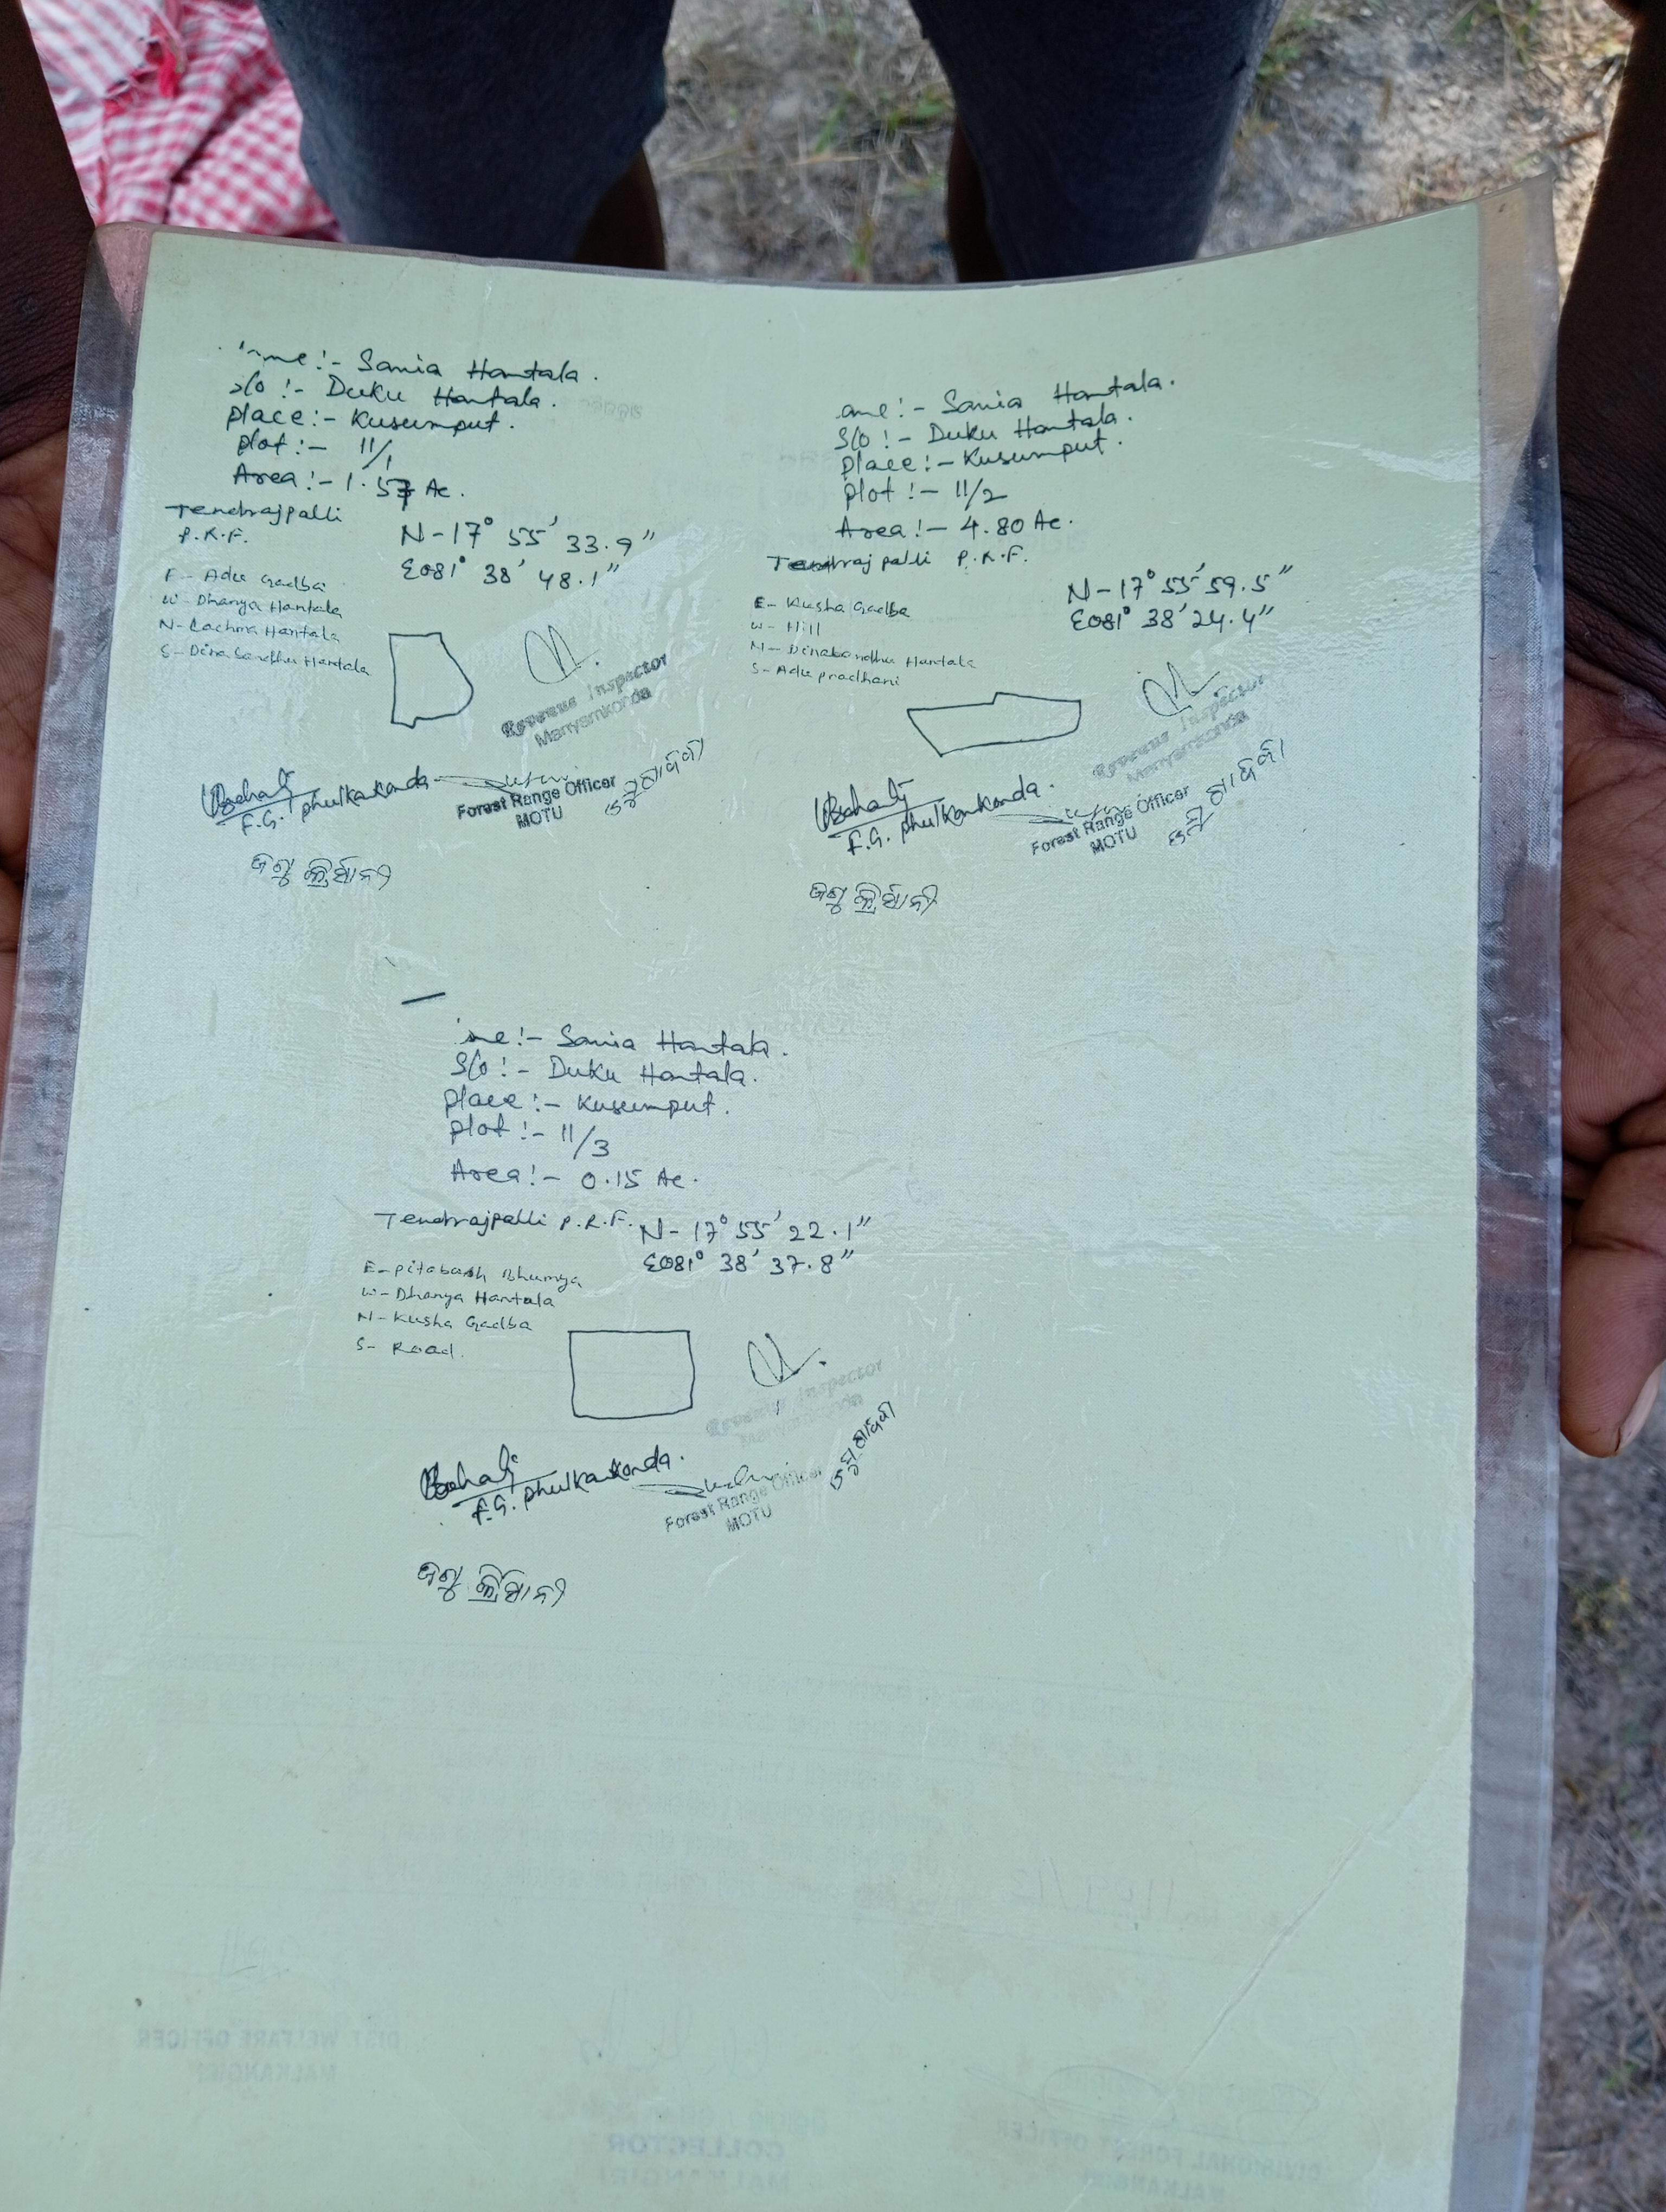 Name :- Sania Hantala.
S/o :- Duku Hantala.
Place :- Kusumput.
plot :- 11/1
Area :- 1.57 Ac.
Tendrajpalli
P.R.F.
N-17° 55' 33.9"
E081° 38' 48.1"
E- Adu Gadba
W- Dhanya Hantala
N- Lachma Hantala
S- Dinabandhu Hantala
Revenue Inspector
Manyamkonda
F.G. phulkankonda
Forest Range Officer
MOTU
ame :- Sania Hantala.
S/o :- Duku Hantala.
place :- Kusumput.
plot :- 11/2
Area :- 4.80 Ac.
Tendrajpalli P.R.F.
N-17° 55' 59.5"
E081° 38' 24.4"
E- Kusha Gadba
W- Hill
N- Dinabandhu Hantala
S- Adu pradhani
Revenue Inspector
Manyamkonda
F.G. phulkankonda.
Forest Range Officer
MOTU
me :- Sania Hantala.
S/o :- Duku Hantala.
place :- Kusumput.
plot :- 11/3
Area :- 0.15 Ac.
Tendrajpalli P.R.F.
N- 17° 55' 22.1"
E081° 38' 37.8"
E- pitabash Bhumya
W- Dhanya Hantala
N- Kusha Gadba
S- Road.
Revenue Inspector
Manyamkonda
F.G. phulkankonda.
Forest Range Officer
MOTU
DIST WELFARE OFFICER
MALKANGIRI
COLLECTOR
MALKANGIRI
DIVISIONAL FOREST OFFICER
MALKANGIRI